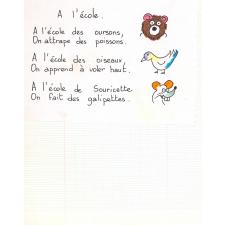 A l'école.
A l'école des oursons,
On attrape des poissons.
A l'école des oiseaux,
On apprend à voler haut.
A l'école de Souricette
On fait des galipettes.